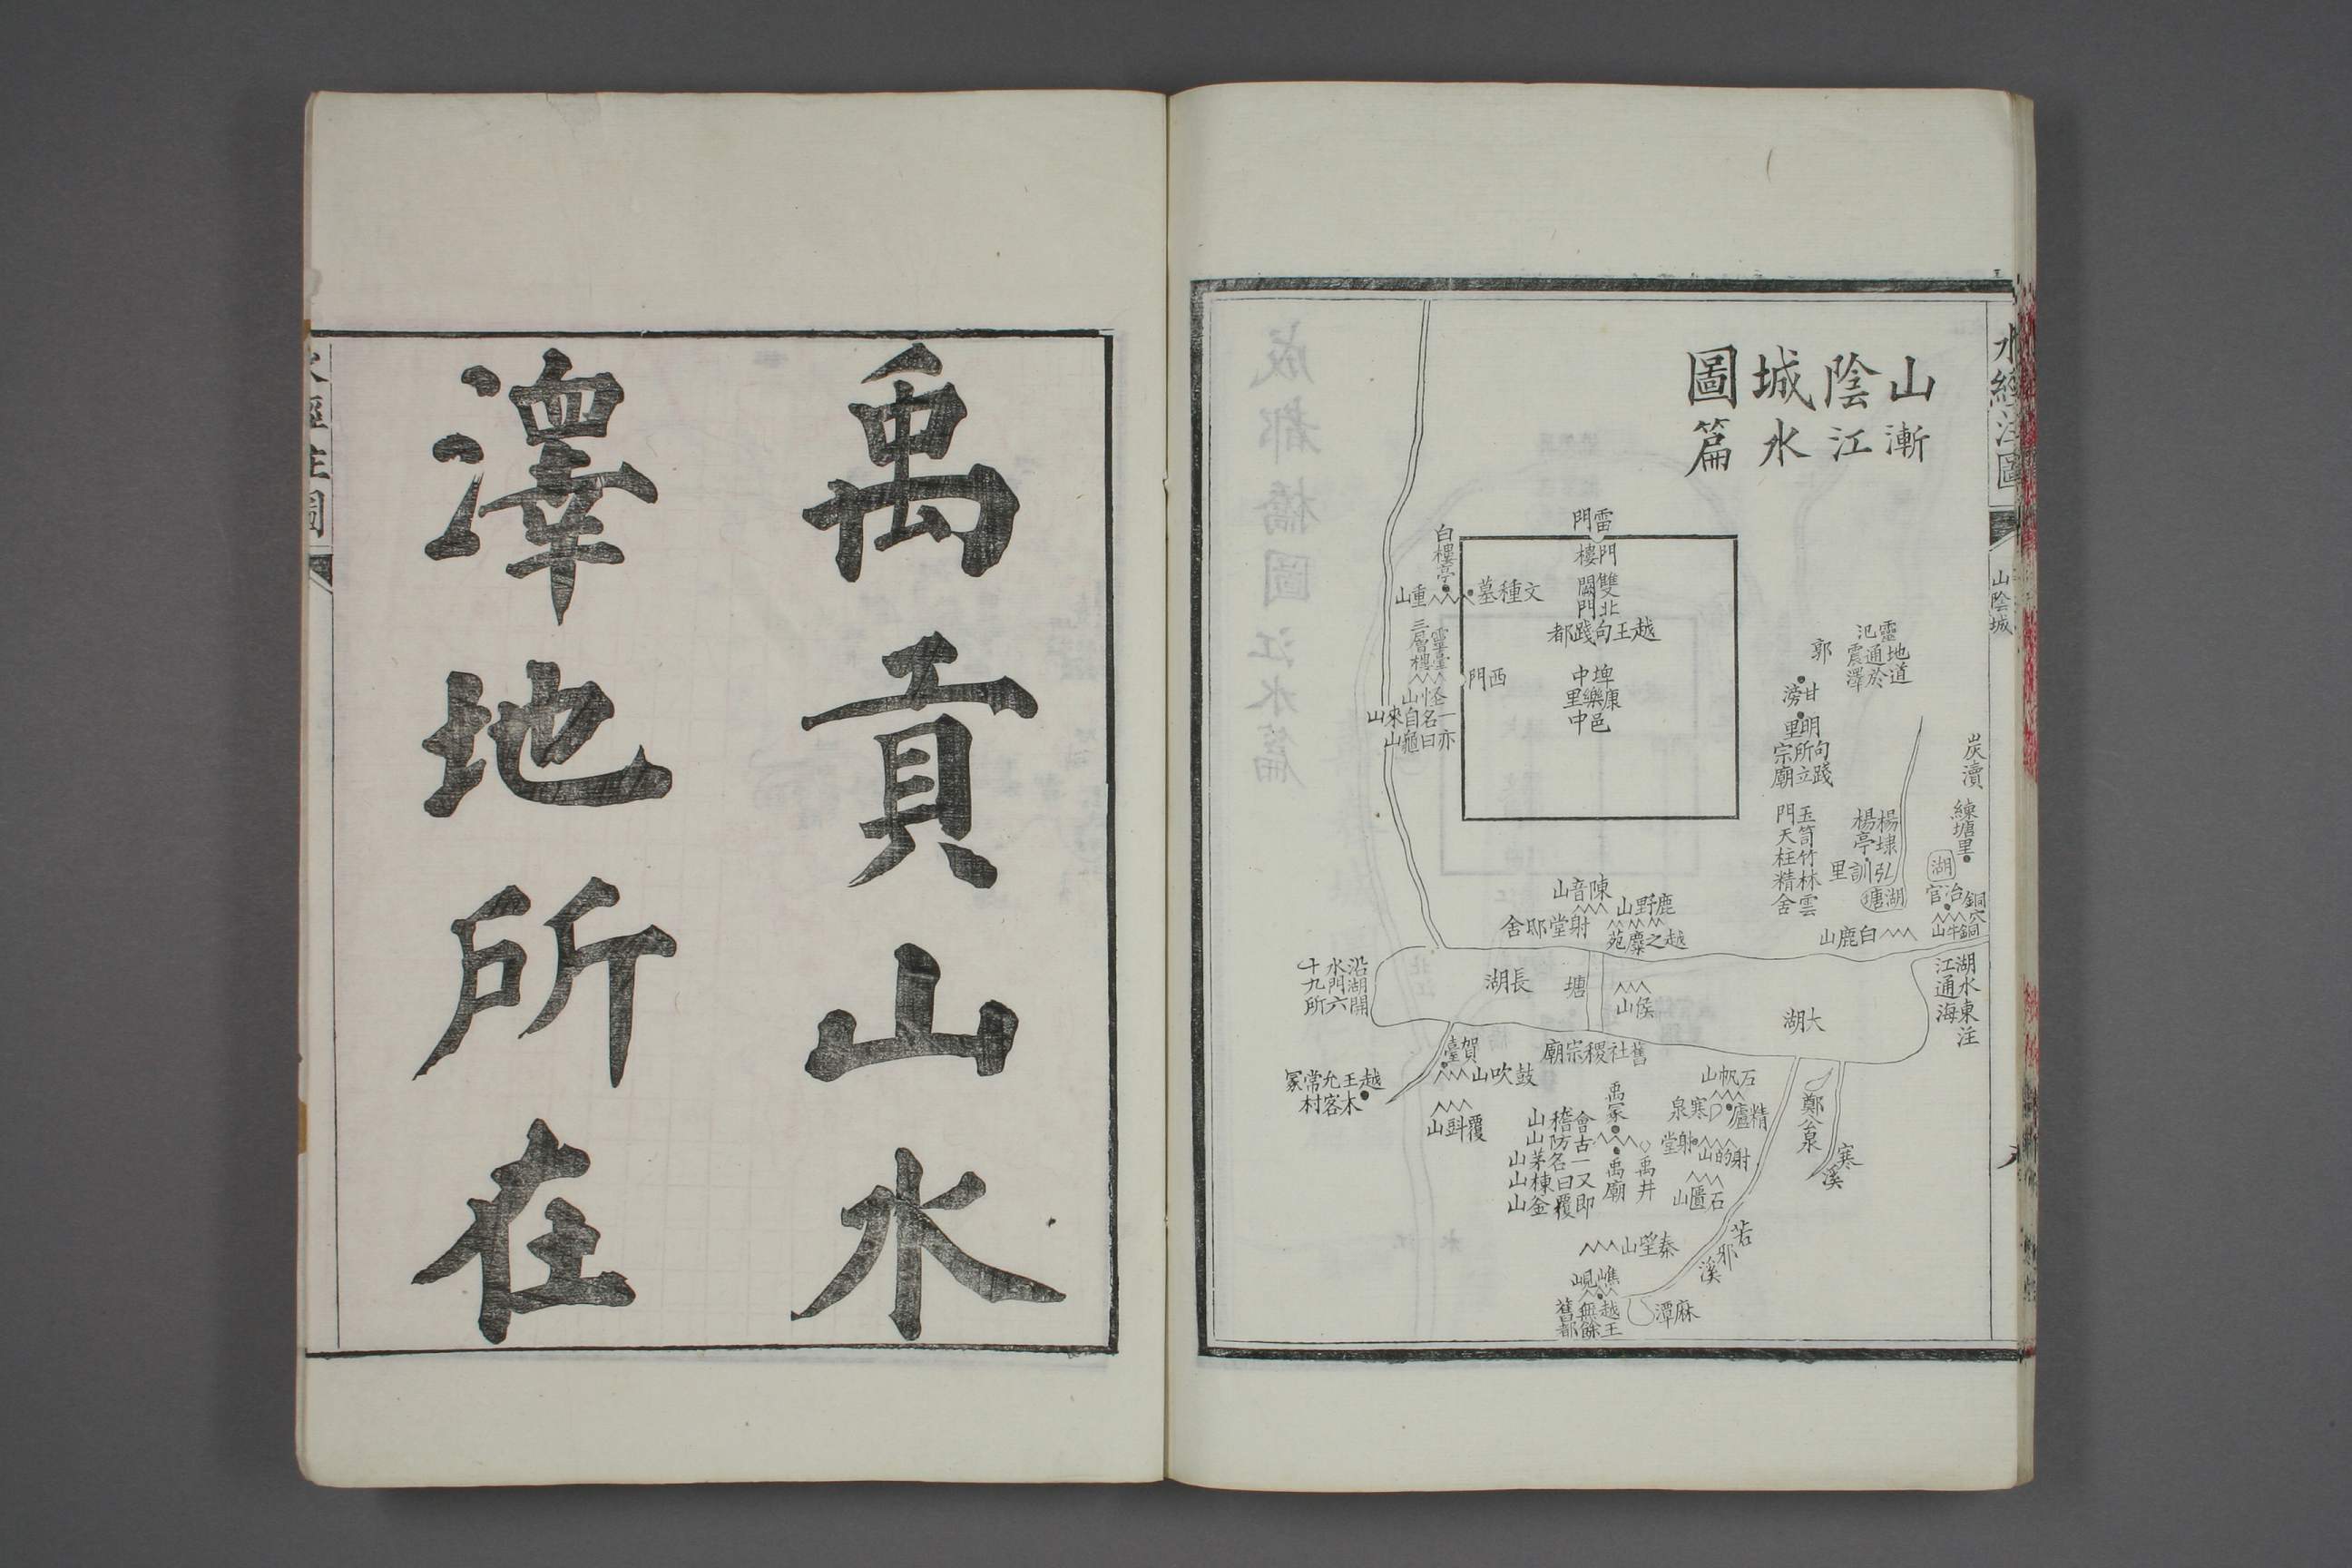 水經注圖
山陰城
山陰城圖
漸江水篇
雷門
門樓
雙闕
北門
越王句踐都
埤中
康樂里
邑中
西門
文種墓
白樓亭
重山
靈臺
三層樓
怪山
一名自來山
亦曰龜山
靈氾
地道通於震澤
郭
甘滂
明里
句踐所立宗廟
玉笥竹林雲
門天柱精舍
炭瀆
練塘里
湖
冶官
銅穴
銅牛山
楊埭
楊亭
弘訓里
湖塘
白鹿山
陳音山
射堂邸舍
鹿野山
越之麋苑
長湖
塘
侯山
大湖
湖水東注
江通海
沿湖開
水門六
十九所
賀臺
鼓吹山
越王允常冢
木客村
覆斟山
舊社稷宗廟
禹冢
禹廟
禹井
會稽山
古防山
一名茅山
又曰棟山
即覆釜山
石帆山
寒泉
精廬
射堂
射的山
石匱山
鄭公泉
寒溪
若邪溪
秦望山
嶕峴
越王無餘舊都
麻潭
禹貢山水
澤地所在
水經注圖